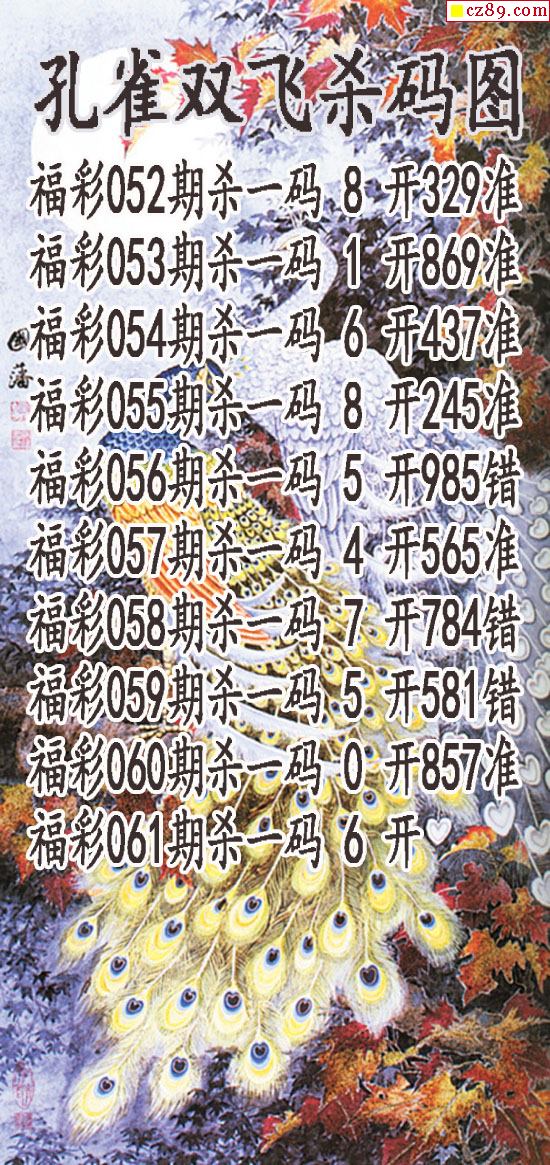 cz89.com
孔雀双飞杀码图
福彩052期杀一码 8 开329准
福彩053期杀一码 1 开869准
福彩054期杀一码 6 开437准
福彩055期杀一码 8 开245准
福彩056期杀一码 5 开985错
福彩057期杀一码 4 开565准
福彩058期杀一码 7 开784错
福彩059期杀一码 5 开581错
福彩060期杀一码 0 开857准
福彩061期杀一码 6 开
國藩